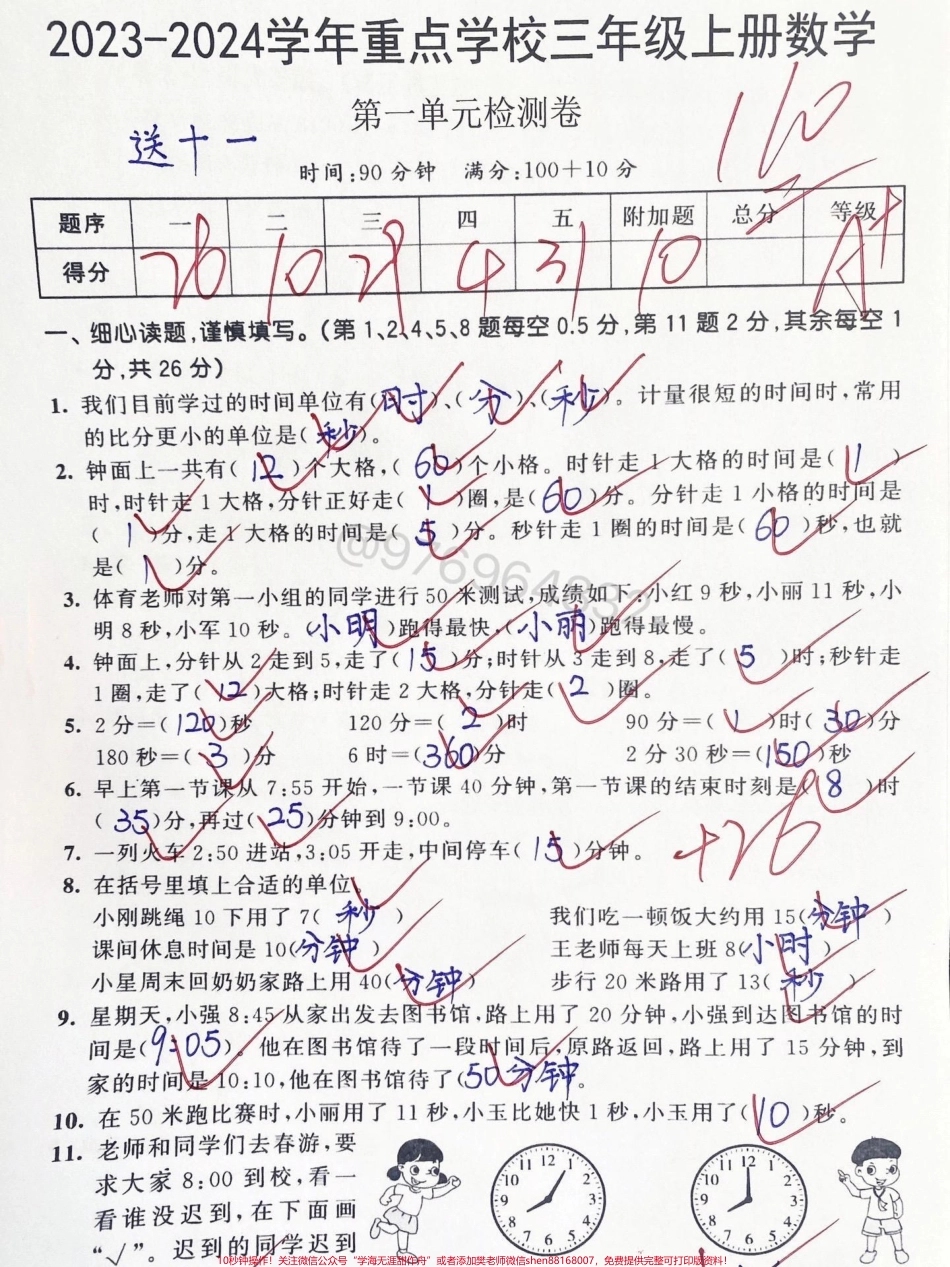 2023-2024学年重点学校三年级上册数学
第一单元检测卷
送十一
时间:90分钟 满分:100+10分
110
题序 一 二 三 四 五 附加题 总分 等级
得分 26 10 29 4 31 10 A+
一、细心读题,谨慎填写。(第1、2、4、5、8题每空0.5分,第11题2分,其余每空1
分,共26分)
1. 我们目前学过的时间单位有(时)、(分)、(秒)。计量很短的时间时,常用
的比分更小的单位是(秒)。
2. 钟面上一共有(12)个大格,(60)个小格。时针走1大格的时间是(1)
时,时针走1大格,分针正好走(1)圈,是(60)分。分针走1小格的时间是
(1)分,走1大格的时间是(5)分。秒针走1圈的时间是(60)秒,也就
是(1)分。
@976964832
3. 体育老师对第一小组的同学进行50米测试,成绩如下:小红9秒,小丽11秒,小
明8秒,小军10秒。(小明)跑得最快,(小丽)跑得最慢。
4. 钟面上,分针从2走到5,走了(15)分;时针从3走到8,走了(5)时;秒针走
1圈,走了(12)大格;时针走2大格,分针走(2)圈。
5. 2分=(120)秒 120分=(2)时 90分=(1)时(30)分
180秒=(3)分 6时=(360)分 2分30秒=(150)秒
6. 早上第一节课从7:55开始,一节课40分钟,第一节课的结束时刻是(8)时
(35)分,再过(25)分钟到9:00。
7. 一列火车2:50进站,3:05开走,中间停车(15)分钟。
+26
8. 在括号里填上合适的单位。
小刚跳绳10下用了7(秒) 我们吃一顿饭大约用15(分钟)
课间休息时间是10(分钟) 王老师每天上班8(小时)
小星周末回奶奶家路上用40(分钟) 步行20米路用了13(秒)
9. 星期天,小强8:45从家出发去图书馆,路上用了20分钟,小强到达图书馆的时
间是(9:05)。他在图书馆待了一段时间后,原路返回,路上用了15分钟,到
家的时间是10:10,他在图书馆待了(50分钟。
10. 在50米跑比赛时,小丽用了11秒,小玉比她快1秒,小玉用了(10)秒。
11. 老师和同学们去春游,要
求大家8:00到校,看一
看谁没迟到,在下面画
“√”。迟到的同学迟到
11 12 1 10 2 9 3 8 4 7 6 5
11 12 1 10 2 9 3 8 4 7 6 5
10秒钟操作!关注微信公众号“学海无涯甜仲舟”或者添加樊老师微信shen88168007,免费提供完整可打印版资料!